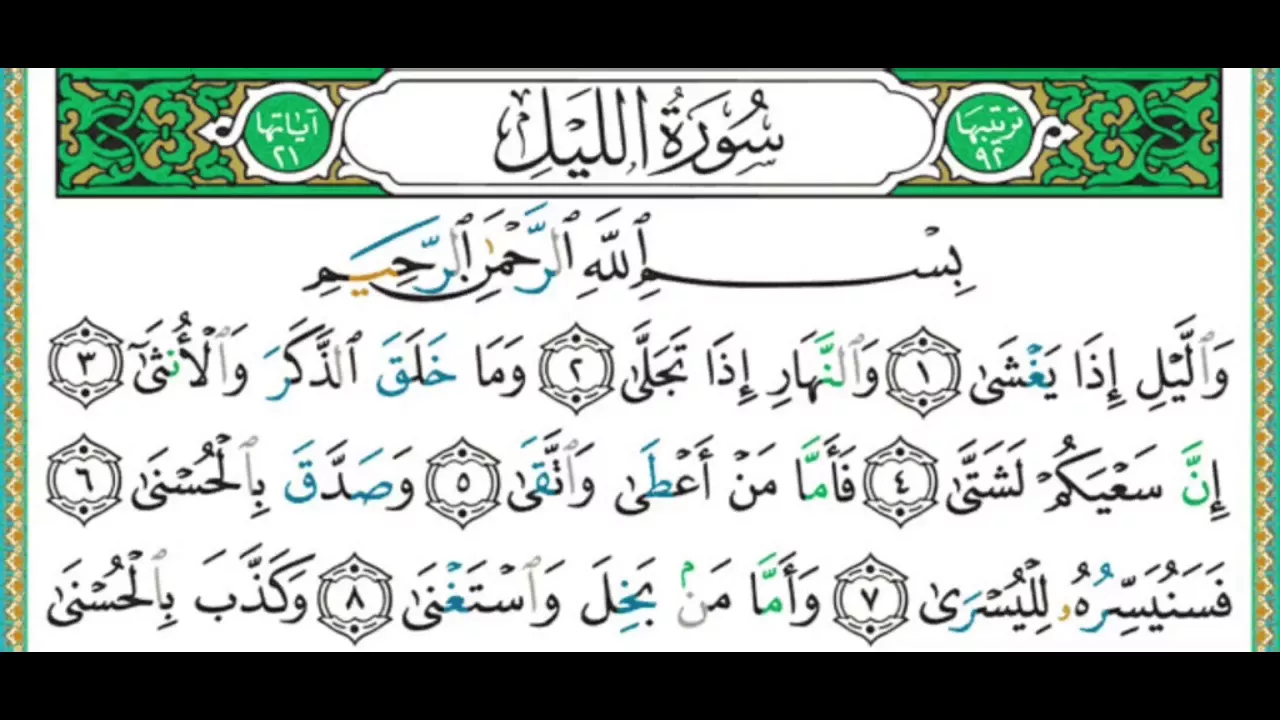 ترتيبها ٩٢
سُورَةُ اللَّيْلِ
آياتها ٢١
بِسْمِ ٱللَّهِ ٱلرَّحْمَٰنِ ٱلرَّحِيمِ
وَٱلَّيْلِ إِذَا يَغْشَىٰ ١ وَٱلنَّهَارِ إِذَا تَجَلَّىٰ ٢ وَمَا خَلَقَ ٱلذَّكَرَ وَٱلْأُنثَىٰٓ ٣
إِنَّ سَعْيَكُمْ لَشَتَّىٰ ٤ فَأَمَّا مَنْ أَعْطَىٰ وَٱتَّقَىٰ ٥ وَصَدَّقَ بِٱلْحُسْنَىٰ ٦
فَسَنُيَسِّرُهُۥ لِلْيُسْرَىٰ ٧ وَأَمَّا مَنۢ بَخِلَ وَٱسْتَغْنَىٰ ٨ وَكَذَّبَ بِٱلْحُسْنَىٰ